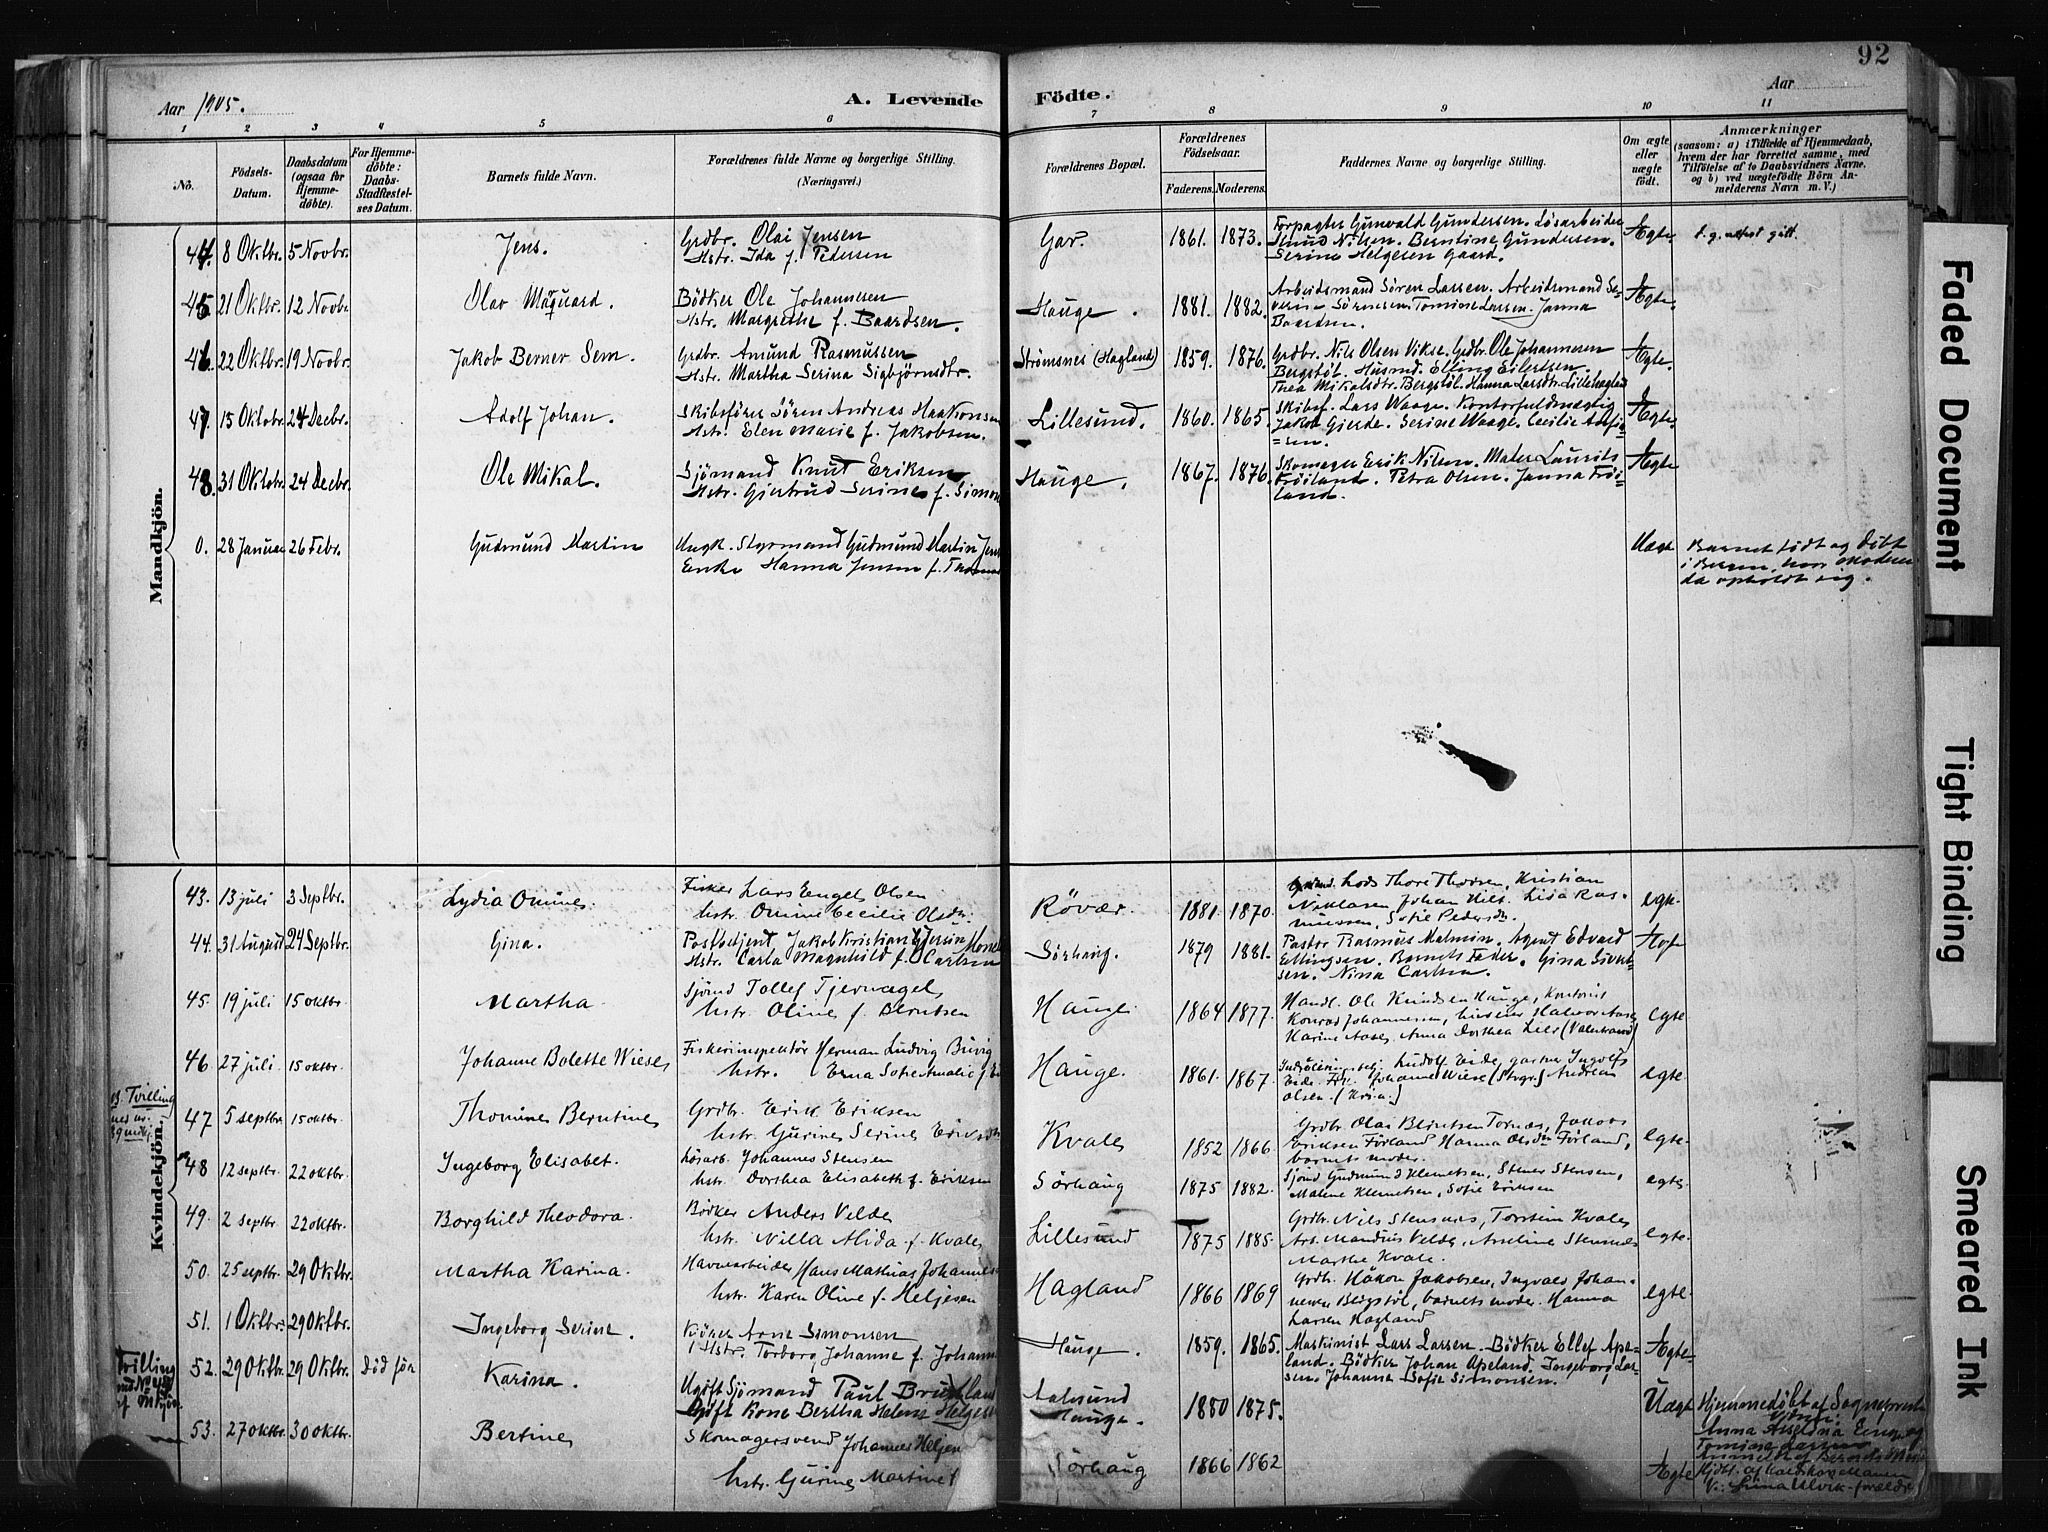 92
Aar 1905.
A. Levende Födte.
Aar
1 2 3 4 5 6 7 8 9 10 11
No.
Födsels-Datum.
Daabsdatum (ogsaa for Hjemmedöbte).
For Hjemmedöbte: Daabs-Stadfæstelses Datum.
Barnets fulde Navn.
Forældrenes fulde Navne og borgerlige Stilling. (Næringsvei.)
Forældrenes Bopæl.
Forældrenes Födselsaar.
Faderens. Moderens.
Faddernes Navne og borgerlige Stilling.
Om ægte eller uægte födt.
Anmærkninger
(saasom: a) i Tilfælde af Hjemmedaab,
hvem der har forrettet samme, med
Tilföielse af to Daabsvidners Navne.
og b) ved uægtefödte Börn Anmelderens Navn m. V.)
Mandkjön.
44. 8 Oktbr. 5 Novbr. Jens. Grdbr. Olai Jensen
Hstr. Ida f. Pedersen
Gar. 1861. 1873. Forpagter Gunvald Gundersen. Lösarbeider
Knud Nilsen. Berntine Gundersen.
Serine Helgesen Gaard.
Ægte.
45 21 Oktbr. 12 Novbr Olav Maquard. Bödker Ole Johannesen
Hstr. Margrethe f. Baardsen.
Hauge. 1881. 1882. Arbeidsmand Sören Larsen. Arbeidsmand Se-
verin Sörensen. Tomine Larsen. Janna
Baardsen.
Ægte.
46. 22 Oktbr. 19 Novbr. Jakob Berner Sem. Grdbr. Amund Rasmussen
Hstr. Martha Serina Sigbjörnsdtr.
Strömsnes (Hagland) 1859. 1876. Grdbr. Nils Olsen Vikse. Grdbr. Ole Johannesen
Bergstöl. Husmd. Elling Eilertsen.
Thea Mikalsdtr. Bergstöl. Hanna Larsdtr. Lillehagland
Ægte.
47. 15 Oktobr. 24 Decbr. Adolf Johan. Skibsförer Sören Andreas Haakonsen
Hstr. Elen Marie f. Jakobsen.
Lillesund. 1860. 1865. Skibsf. Lars Waage. Kontorfuldmægtig
Jakob Gjerde. Serine Waage. Cecilie
Ægte.
48. 31 Oktobr. 24 Decbr. Ole Mikal. Sjömand Knut Eriksen
Hstr. Gjertrud Serine f. Simon
Hauge. 1867. 1876. Skomager Erik Nilsen. Maler Laurits
Fröiland. Petra Olsen. Janna Fröi-
land.
Ægte
0. 28 Januar 26 Febr. Gudmund Martin Ungk. Styrmand Gudmund Martin
Enke Hanna Jensen f.
Uægt Barnet födt og döbt
i Bergen, hvor Moderen
da opholdt sig.
Kvindekjön.
43. 13 juli 3 Septbr. Lydia Omine. Fisker Lars Engel Olsen
hstr. Omine Cecilie Olsdtr.
Rövær. 1881. 1870. Lods Thore Thorsen, Kristian
Niklasen, Johan Lida Ras-
mussen, Sofie Pedersdtr.
egte.
44. 31 August 24 Septbr. Gina. Postbetjent Jakob Kristian
Hstr. Carla Magnhild f. Carlsen
Sörhaug. 1879 1881. Pastor Rasmus Malmin. Agent Edvard
Ellingsen. Barnets Fader. Gina Sivert-
sen. Nina Carlsen.
Ægte
45. 19 juli 15 oktbr. Martha. Sjömd Tollef Tjernagel
hstr. Oline f. Berntsen
Hauge 1864 1877. Handl. Ole Knudsen Hauge, Kontorist
Konrad Johannessen, Halvor Aase
Karine Aase, Anna Dorthea Lier (Valestrand)
egte
46. 27 juli 15 oktbr. Johanne Bolette Wiese Fiskeriinspektör Herman Ludvig Buvig
hstr. Erna Sofie Amalie f.
Hauge. 1861. 1867. Ludolf Eide, gartner Ingolf
Eide. Frk. Johanne Wiese Andreas
Olsen. (Kr.a.)
egte.
47 5 septbr. 15 oktbr. Thomine Berntine Grdbr. Erik Eriksen
hstr. Gurine Serine
Kvale 1852 1866. Grdbr. Olai Berntsen Tornæs, Jakob
Eriksen Förland, Hanna Olsdtr Förland,
barnets moder.
egte.
48 12 septbr. 22 oktbr. Ingeborg Elisabet. Lösarb. Johannes Stensen
hstr. Dorthea Elisabeth f. Eriksen
Sörhaug 1875 1882. Sjömd Gudmund Klemetsen, Stener Stensen,
Malene Klemetsen, Sofie Eriksen
egte.
49. 2 septbr. 22 oktbr. Borghild Theodora. Bödker Anders Velde
hstr. Nilla Alida f. Kvale
Lillesund 1875 1885. Grdbr. Nils Stensnæs, Torstein Kvale
Arb. Mandius Velde, Aseline Stensnæs
Marthe Kvale.
egte.
50. 25 septbr. 29 Oktbr. Martha Karina. Havnearbeider Hans Mathias Johannes
hstr. Karen Oline f. Heljesen
Hagland 1866 1869 Grdbr. Håkon Jakobsen, Ingvald Johan-
nesen Bergstöl, barnets moder. Hanna
Larsen Hagland
egte.
51. 1 Oktbr. 29 Oktbr. Ingeborg Serine. Arne Simonsen
Hstr. Torborg Johanne f. Johann
Hauge. 1859. 1865. Maskinist Lars Larsen. Bödker Ellef Ape-
land. Bödker Johan Apeland. Ingeborg Lar-
sen. Johanne Sofie Simonsen.
Ægte
52. 29 Oktbr. 29 Oktbr. Död för Karina. Ugift Sjömand Paul
Gift Kone Bertha Helene
Aalesund
Hauge. 1880 1875. Uægt Hjemmedöbt af Sogneprest
53. 27 oktbr. 30 oktbr. Bertine Skomagersvend Johannes Heljen
hstr. Gurine Martine f
Sörhaug 1866 1862 Ægte
Faded Document
Tight Binding
Smeared Ink